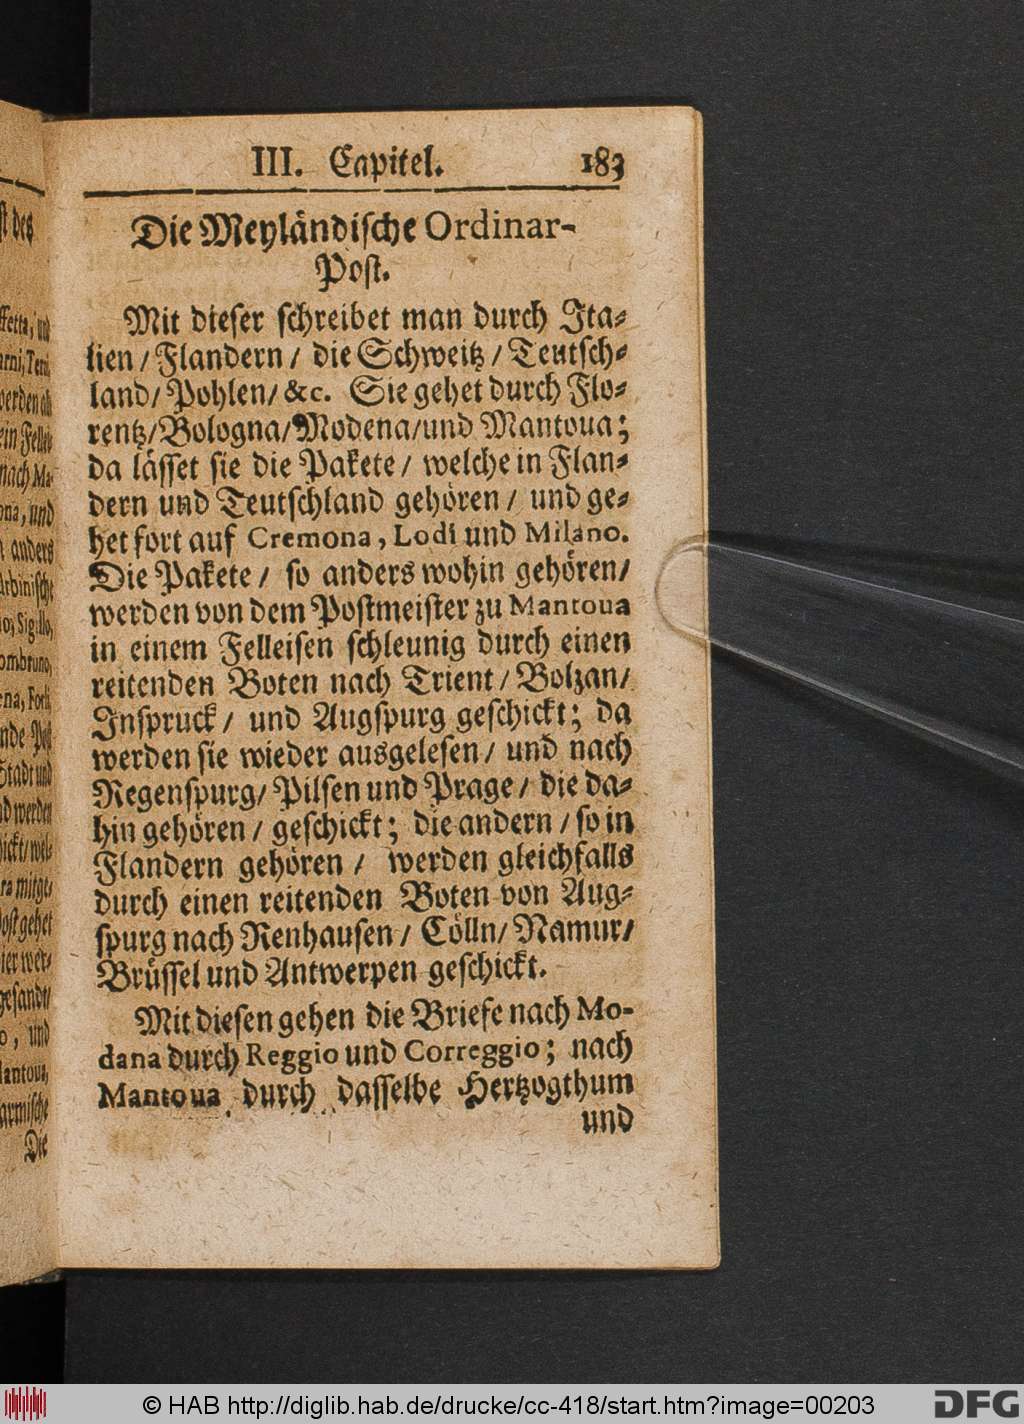 III. Capitel. 183
Die Meyländische Ordinar-
Post.
Mit dieser schreibet man durch Ita-
lien / Flandern / die Schweitz / Teutsch-
land / Pohlen / &c. Sie gehet durch Flo-
rentz / Bologna / Modena / und Mantoua;
da lässet sie die Pakete / welche in Flan-
dern und Teutschland gehören / und ge-
het fort auf Cremona, Lodi und Milano.
Die Pakete / so anders wohin gehören /
werden von dem Postmeister zu Mantoua
in einem Felleisen schleunig durch einen
reitenden Boten nach Trient / Bolzan /
Inspruck / und Augspurg geschickt; da
werden sie wieder ausgelesen / und nach
Regenspurg / Pilsen und Prage / die da-
hin gehören / geschickt; die andern / so in
Flandern gehören / werden gleichfalls
durch einen reitenden Boten von Aug-
spurg nach Renhausen / Cölln / Namur /
Brüssel und Antwerpen geschickt.
Mit diesen gehen die Briefe nach Mo-
dana durch Reggio und Correggio; nach
Mantoua durch dasselbe Hertzogthum
und
© HAB http://diglib.hab.de/drucke/cc-418/start.htm?image=00203
DFG